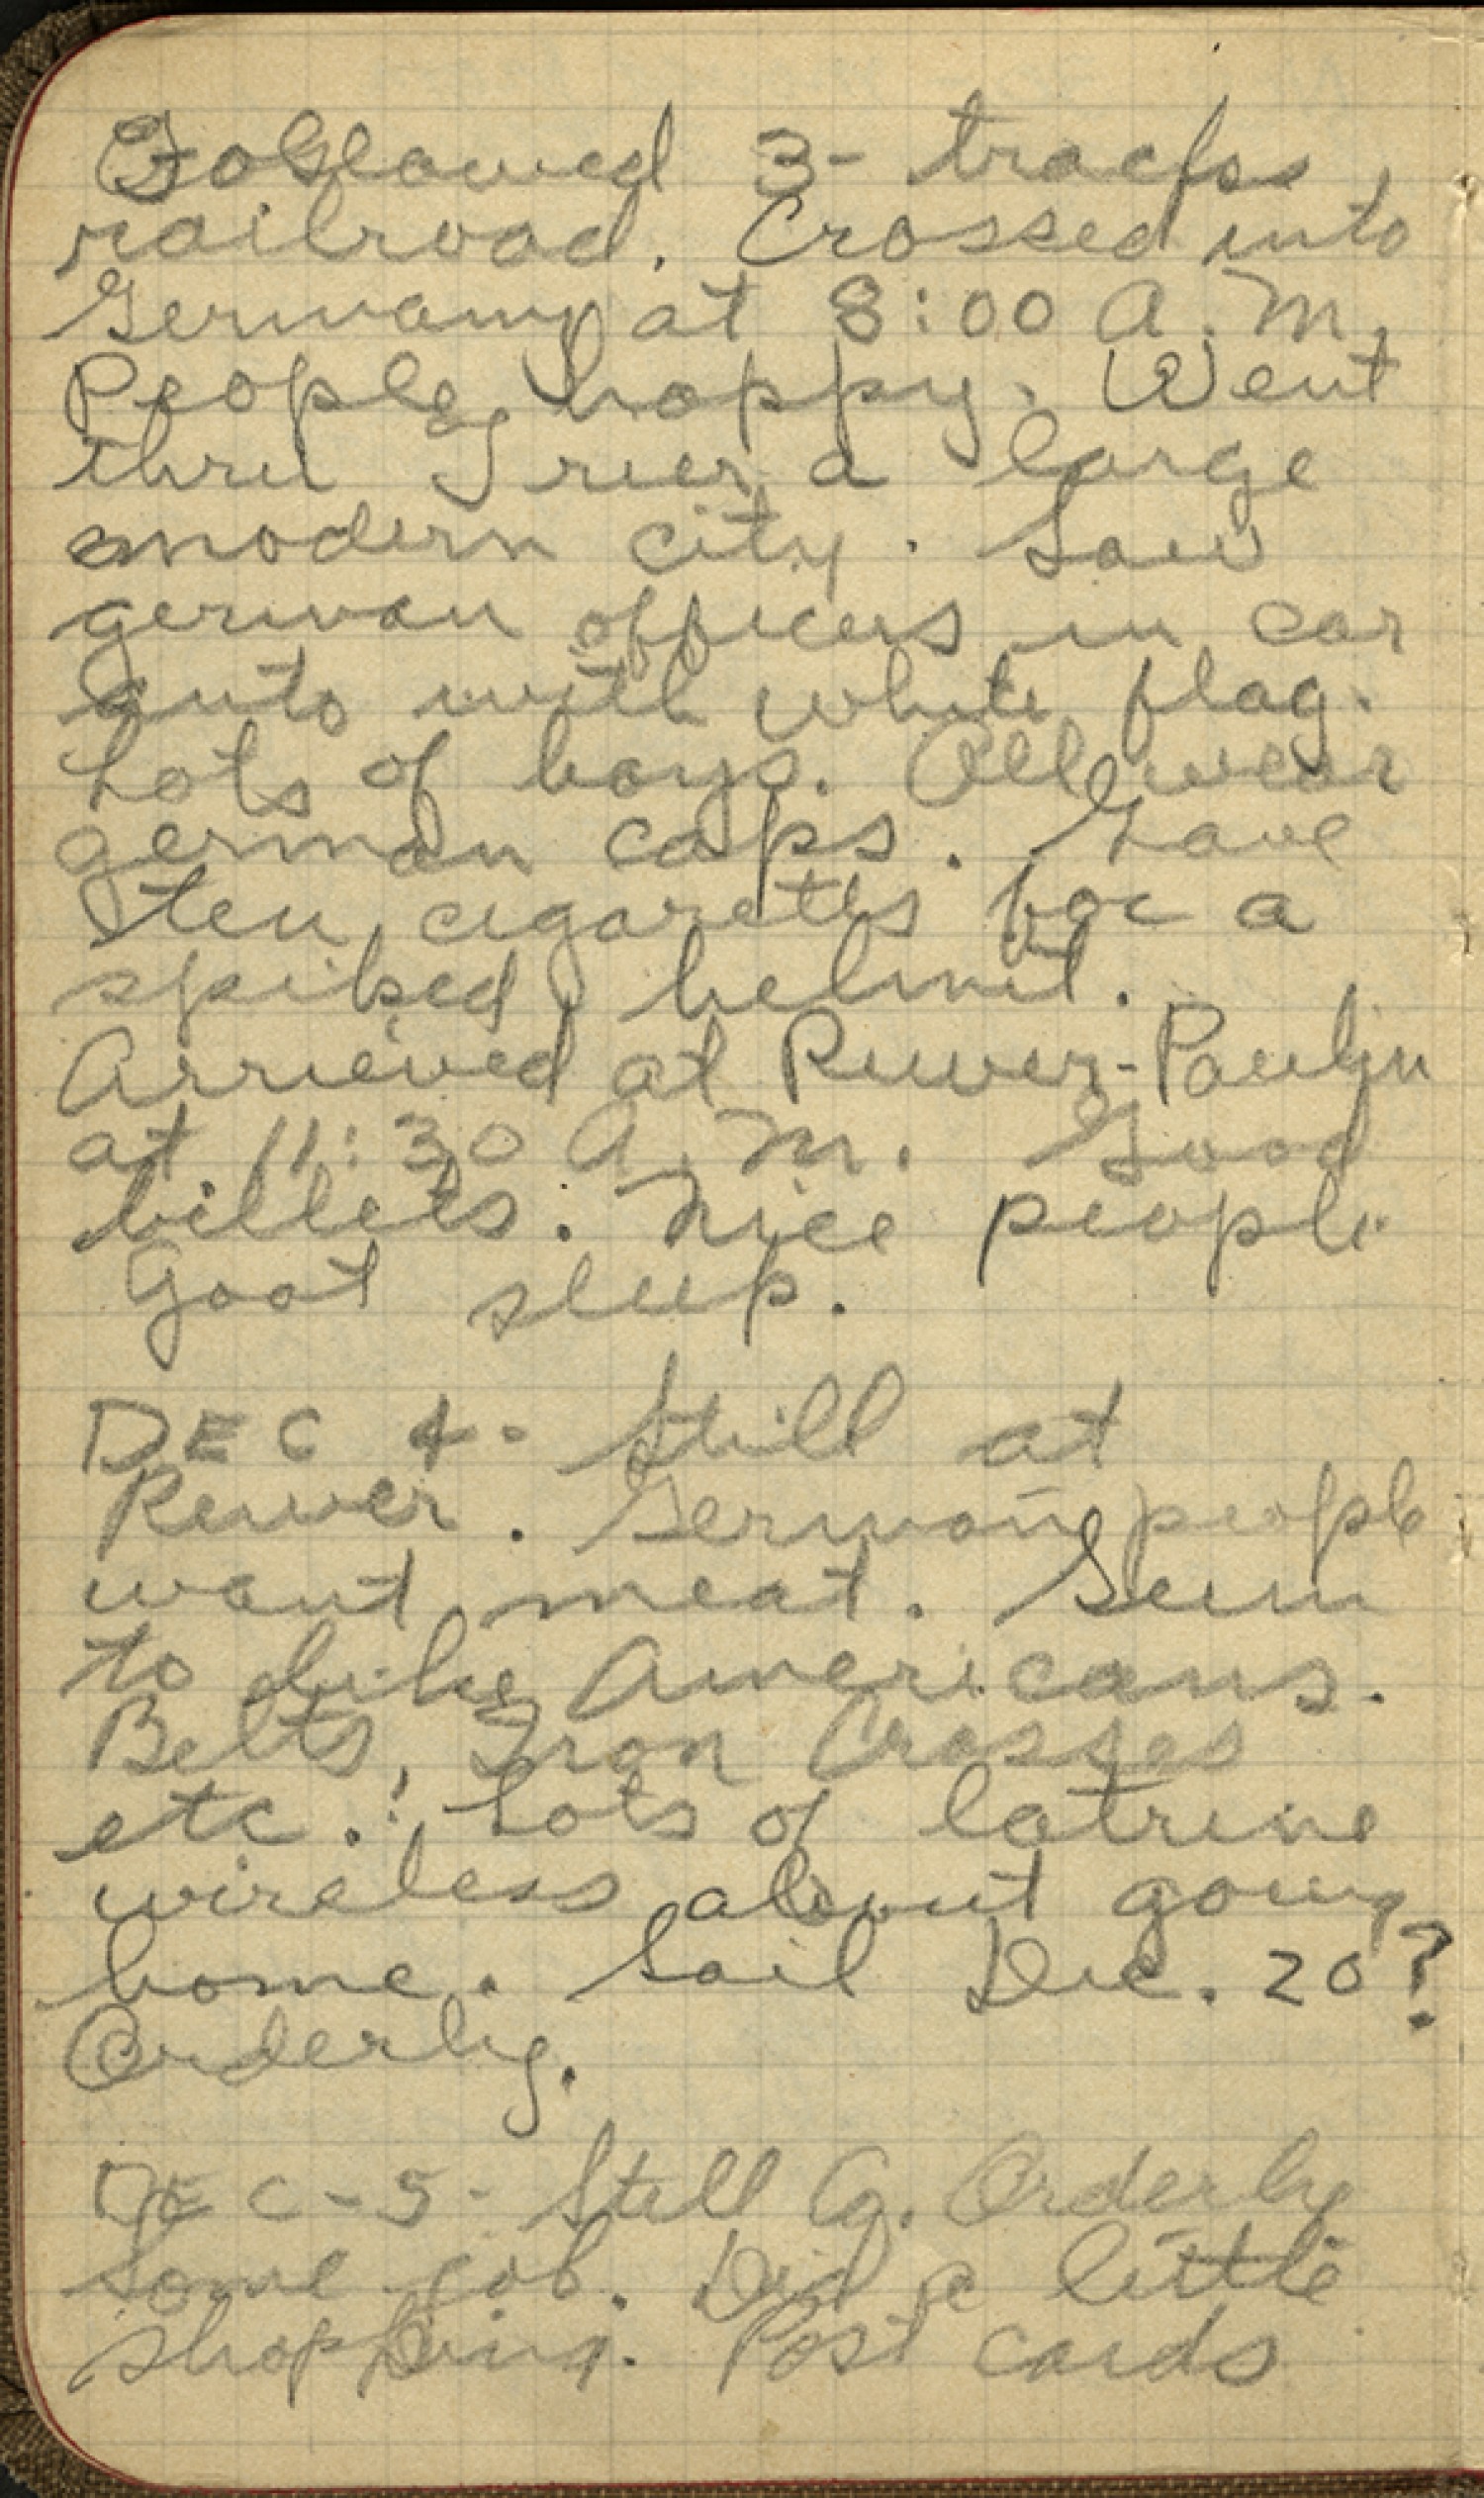 Followed 3- tracks
railroad. Crossed into
Germany at 8:00 A.M.
People happy. Went
thru Trier a large
modern city. Saw
german officers in car
auto with white flag.
Lots of boys. All wear
german caps. Gave
ten cigarettes for a
spiked helmit.
Arrieved at Ruwer-Paulin
at 11:30 A.M. Good
billets. Nice people.
Goot sleep.
DEC 4- Still at
Ruwer. German people
want meat. Seem
to like Americans.
Belts, Iron Crosses
etc.! Lots of latrine
wireless about going
home. Sail Dec. 20?
Orderly.
DEC-5- Still Co. Orderly
Some job. Did a little
shopping. Post cards